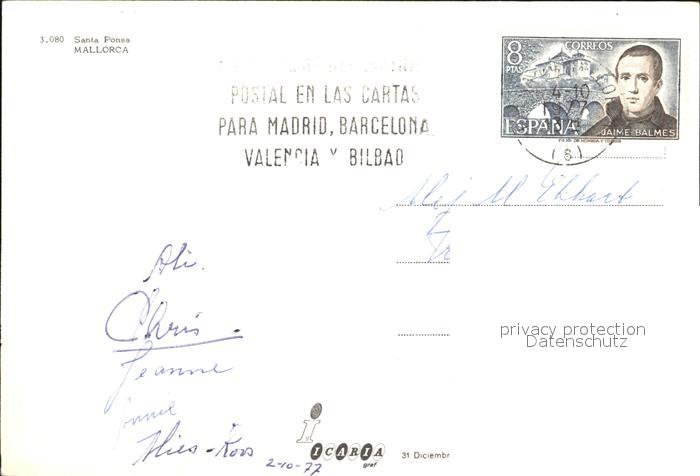 3.080 Santa Ponsa
MALLORCA
POSTAL EN LAS CARTAS
PARA MADRID, BARCELONA
VALENCIA Y BILBAO
8 CORREOS
PTAS
4-10
77
ESPAÑA JAIME BALMES
(8)
M Ekhart
privacy protection
Datenschutz
Ali.
Chris
Jeanne
Mies-Koos
2-10-77
i
ICARIA
graf
31 Diciembr